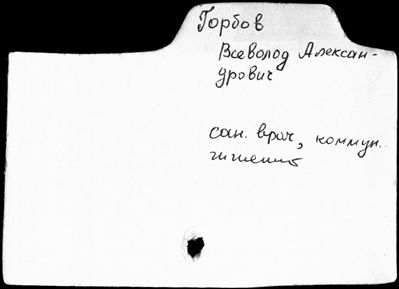 Горбов
Всеволод Алексан-
дрович
сан. врач, коммун.
гигиенист